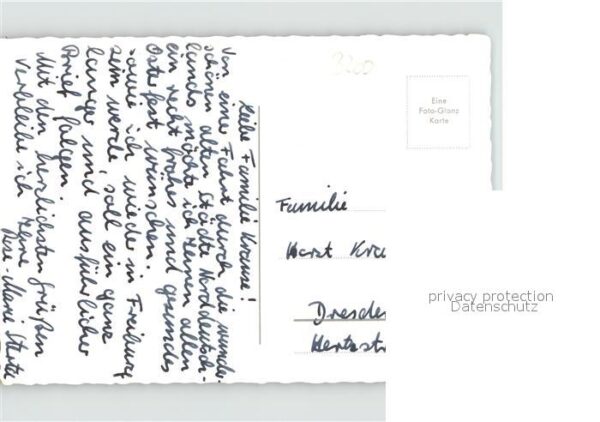 Liebe Familie Krause!
Von einer Fahrt durch die wunder-
schönen alten Städte Norddeutsch-
lands möchte ich Ihnen allen
ein recht frohes und gesundes
Osterfest wünschen.
Sowie ich wieder in Freiburg
sein werde, soll ein ganz
langer und ausführlicher
Brief folgen.
Mit den herzlichsten Grüßen
verbleibe ich Ihre
Rose-Marie
3200
Eine
Foto-Glanz
Karte
Familie
Horst Krau
Dresden
Hertzstr
privacy protection
Datenschutz